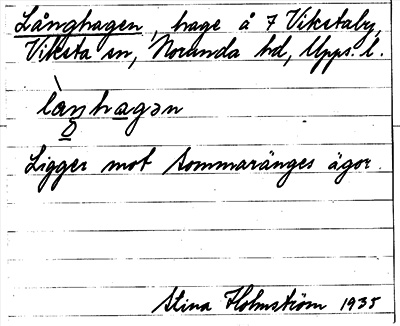 Långhagen, hage å 7 Vikstaby,
Viksta sn, Norunda hd, Upps. l.
làŋhagən
o
Ligger mot Sommaränges ägor.
Stina Holmström 1935